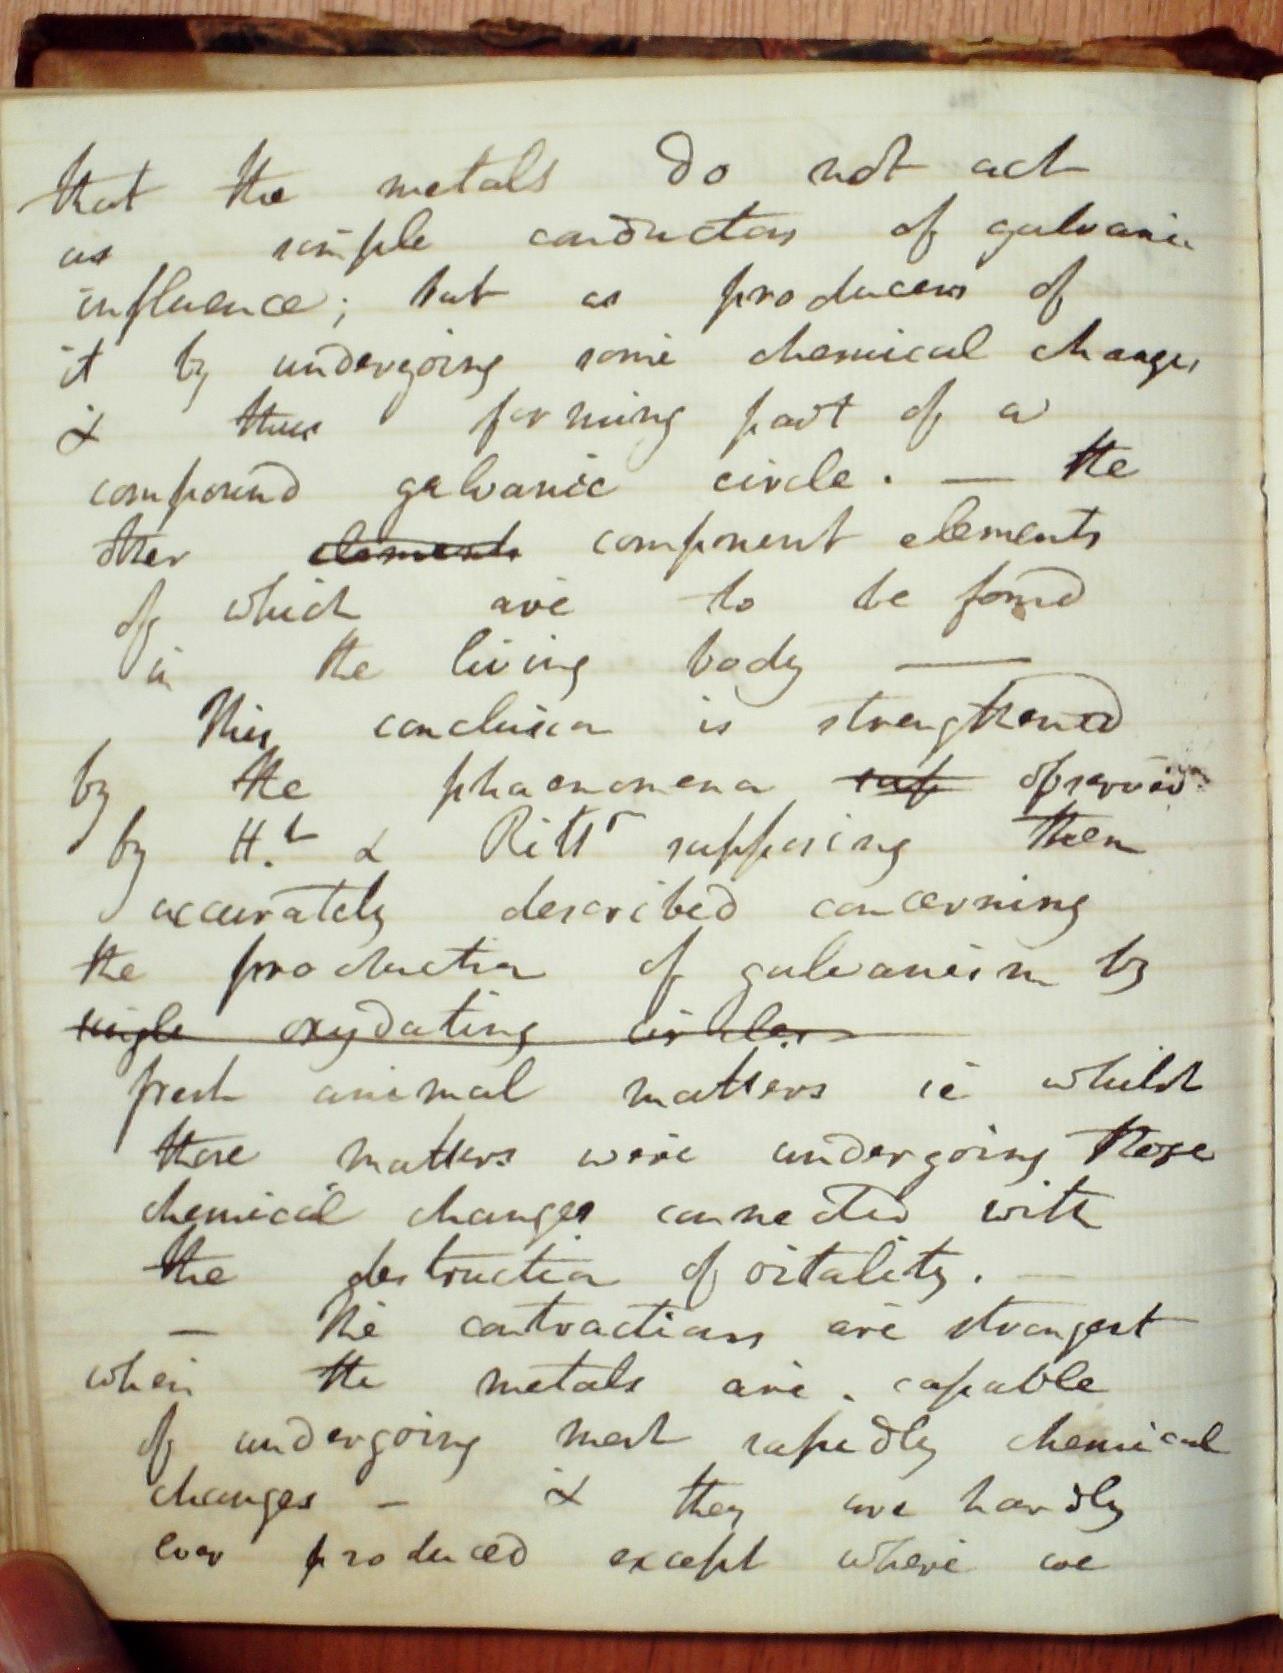 that the metals do not act
as simple conductors of galvanic
influence; but as producers of
it by undergoing some chemical changes
& thus forming part of a
compound galvanic circle. — the
other elements component elements
of which are to be found
in the living body —
This conclusion is strengthened
by the phaenomena observed
by H.t & Rittr supposing them
accurately described concerning
the production of galvanism by
single oxydating circles
fresh animal matters ie whilst
these matters were undergoing those
chemical changes connected with
the destruction of vitality. —
— The contractions are strongest
when the metals are capable
of undergoing most rapidly chemical
changes — & they are hardly
ever produced except where we